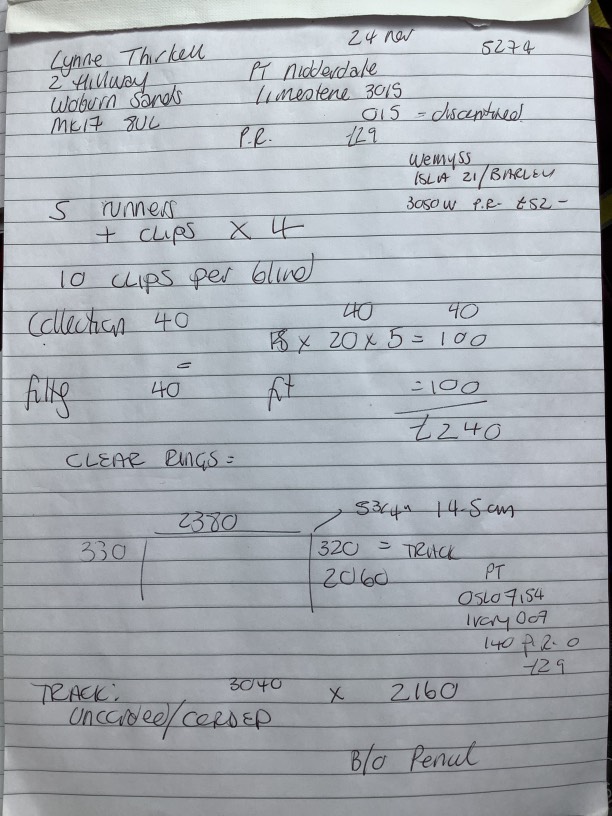 24 nov 5274
Lynne Thirkell
2 Hillway PT Nidderdale
Woburn Sands Limestone 3015
MK17 8UL 015 = discontinued
P.R. £29
Wemyss
ISLA 21/BARLEY
3050W P.R. £52-
5 runners
+ clips x 4
10 clips per blind
Collection 40 40 40
x 20 x 5 = 100
=
40 fit =100
£240
CLEAR RINGS =
2380 14.5cm
330 320 = TRACK
2060 PT
OSLO 7154
Ivory 007
140 P.R. 0
£29
TRACK: 3040 x 2160
Uncorded/CORDED
B/O